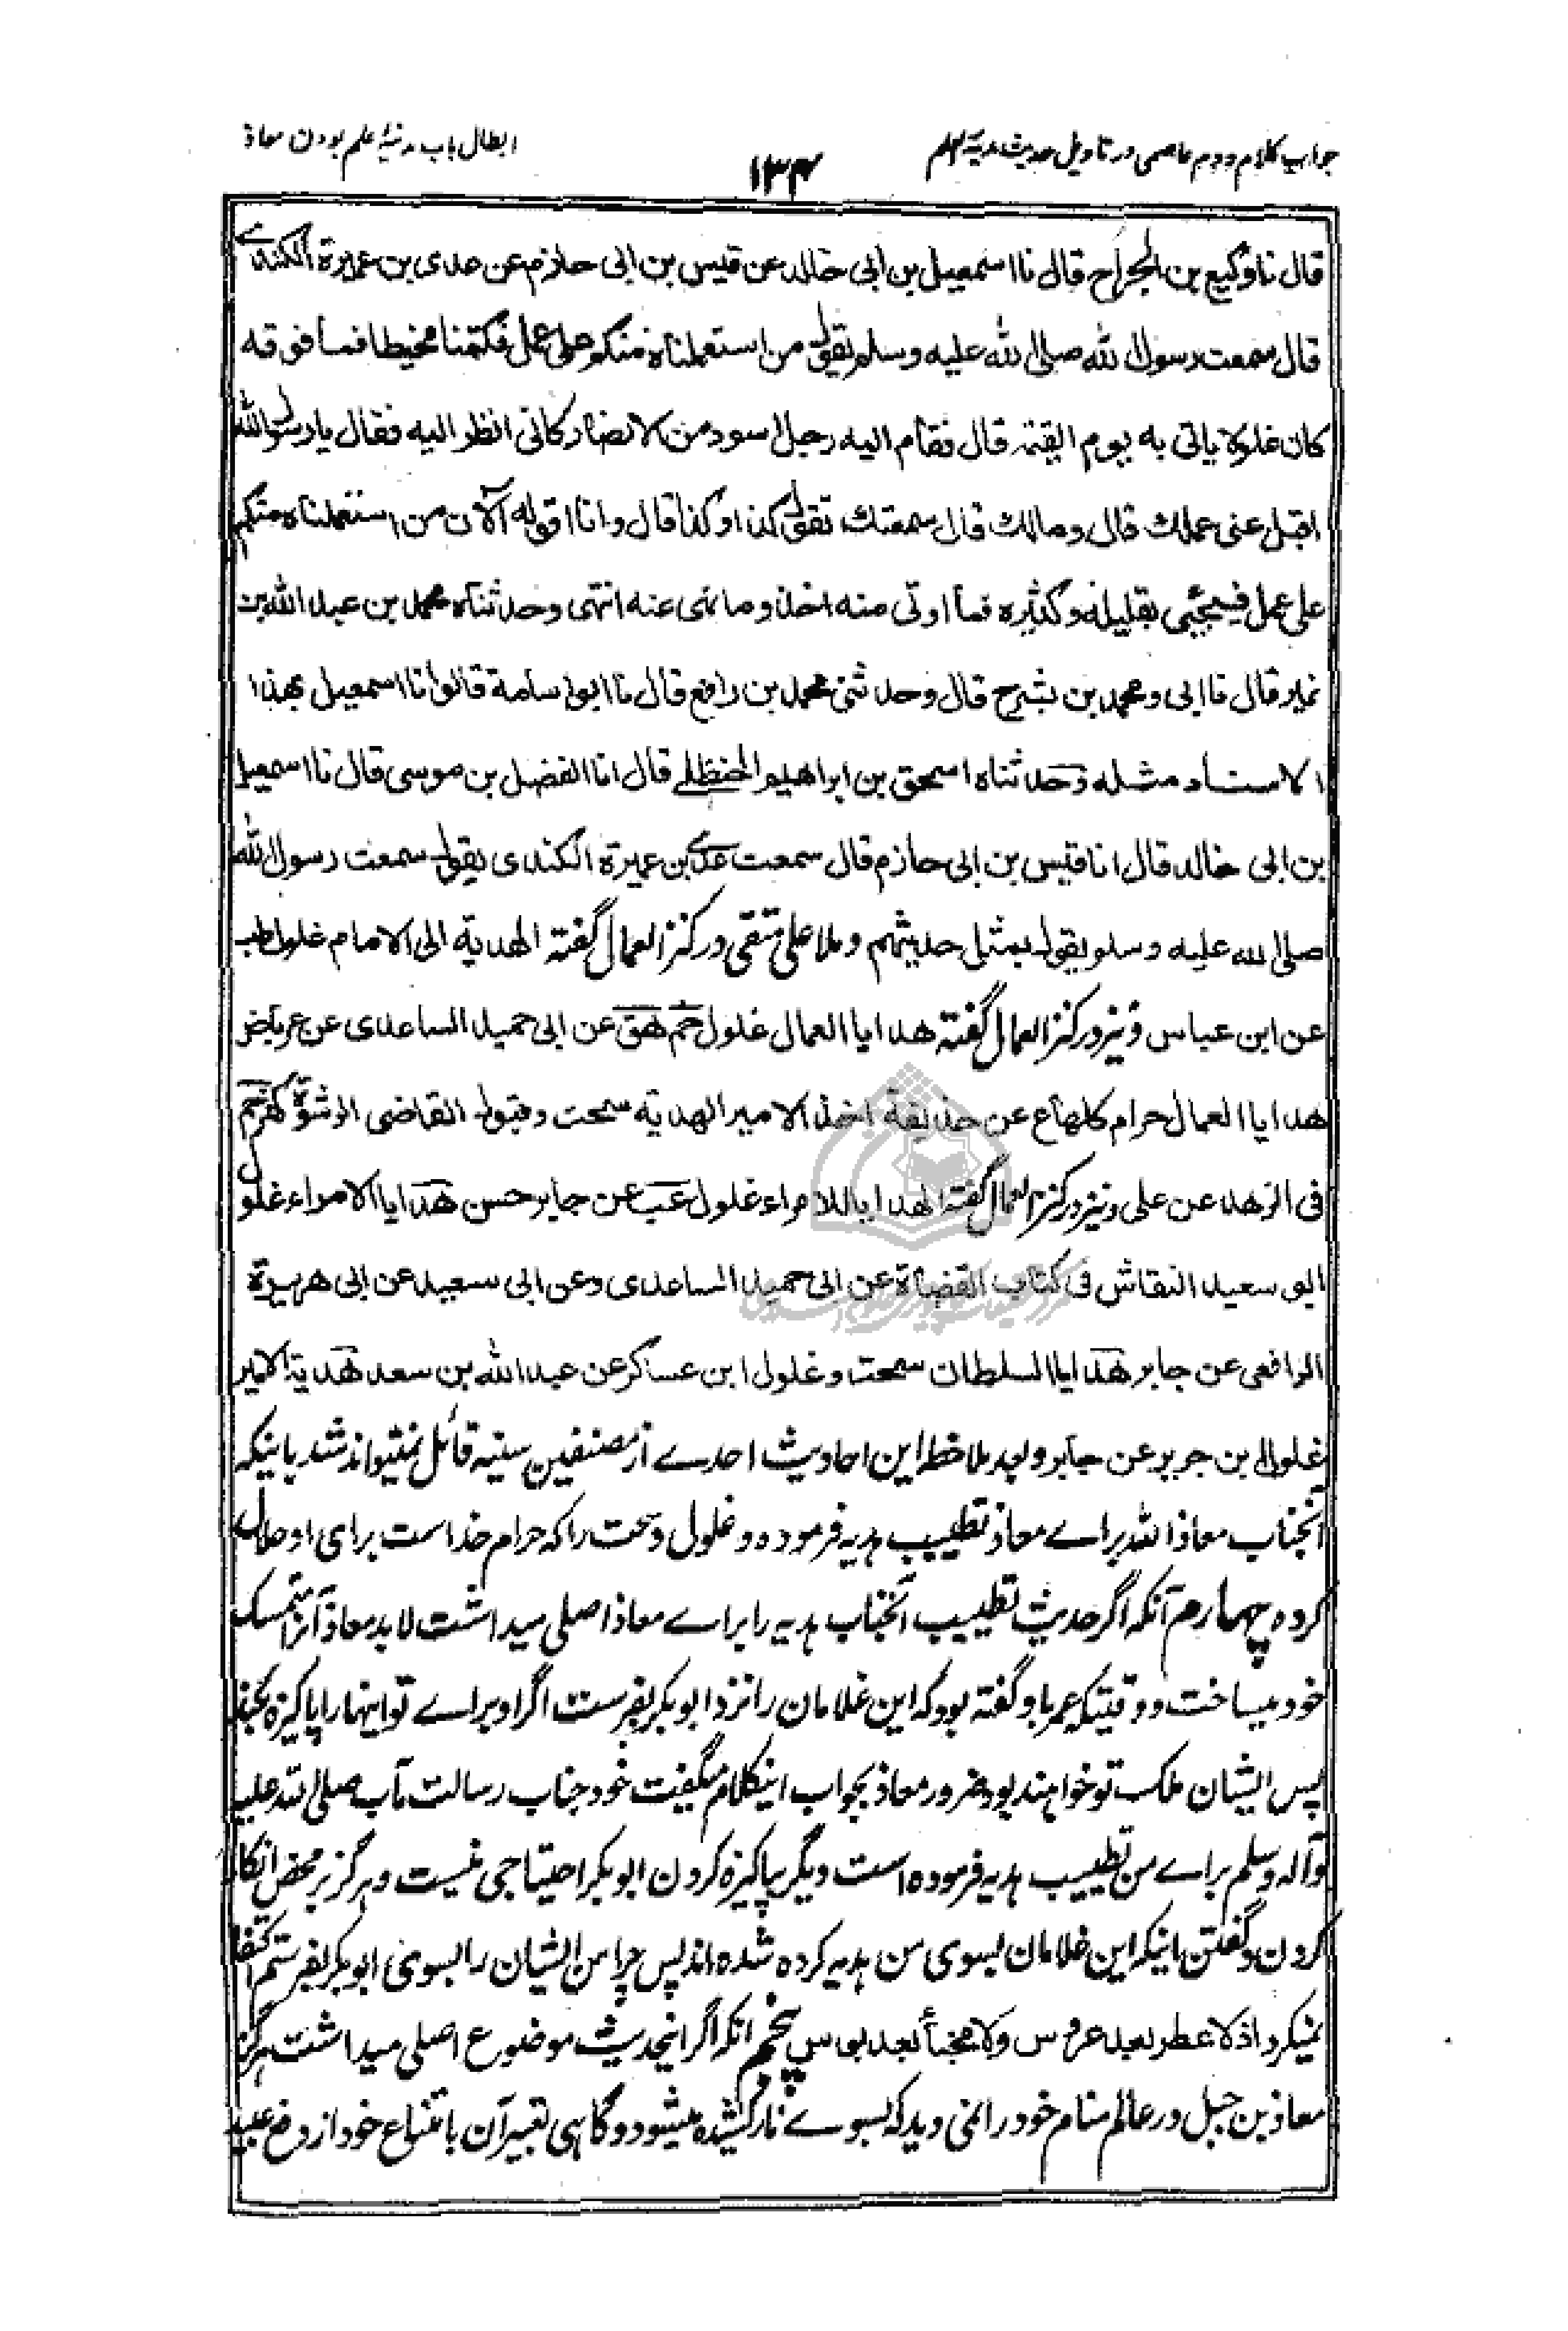 جواب کلام دوم عاصمی در تاویل حدیث مدینة العلم
۱۳۴
ابطال باب مدینۀ علم بودن معاذ
قال نا وکیع بن الجراح قال نا اسمعیل بن ابی خالد عن قیس بن ابی حازم عن عدی بن عمیرة الکندی
قال سمعت رسول الله صلی الله علیه وسلم یقول من استعملناه منکم علی عمل فکتمنا مخیطا فما فوقه
کان غلولا یاتی به یوم القیمة قال فقام الیه رجل اسود من الانصار کانی انظر الیه فقال یا رسول الله
اقبل عنی عملک قال ومالک قال سمعتک تقول کذا وکذا قال وانا اقوله الآن من استعملناه منکم
علی عمل فیجئی بقلیله وکثیره فما اوتی منه اخذ وما نهی عنه انتهی وحدثناه محمد بن عبد الله بن
نمیر قال نا ابی ومحمد بن بشر ح قال وحدثنی محمد بن رافع قال نا ابو اسامة قالوا نا اسمعیل بهذا
الاسناد مثله وحدثناه اسحق بن ابراهیم الحنظلی قال انا الفضل بن موسی قال نا اسمعیل
بن ابی خالد قال انا قیس بن ابی حازم قال سمعت عدی بن عمیرة الکندی یقول سمعت رسول الله
صلی الله علیه وسلم یقول بمثل حدیثهم وملا علی متقی در کنز العمال گفته الهدیة الی الامام غلول طب
عن ابن عباس ونیز در کنز العمال گفته هدایا العمال غلول حم هق عن ابی حمید الساعدی عن عرباض
هدایا العمال حرام کلها ع عن حذیفة اخذ الامیر الهدیة سحت وقبول القاضی الرشوة کفر حم
فی الزهد عن علی ونیز در کنز العمال گفته الهدایا للامراء غلول عب عن جابر حسن هدایا الامراء غلول
ابو سعید النقاش فی کتاب القضاة عن ابی حمید الساعدی وعن ابی سعید عن ابی هریرة
الرافعی عن جابر هدایا السلطان سحت وغلول ابن عساکر عن عبد الله بن سعد هدیة الامیر
غلول ابن جریر عن جابر وبعد ملاحظۀ این احادیث احدے از مصنفین سنیه قائل نمیتواند شد باینکه
آنجناب معاذ الله براے معاذ تطییب هدیه فرموده وغلول وسحت را که حرام خداست برای او حلال
کرده چهارم آنکه اگر حدیث تطییب آنجناب هدیه را براے معاذ اصلی میداشت لابد معاذ آنرا متمسک
خود میساخت ووقتیکه عمر باو گفته بود که این غلامان را نزد ابوبکر بفرست اگر او براے تو اینها را پاکیزه بکند
پس ایشان ملک تو خواهند بود ضرور معاذ بجواب اینکلام میگفت خود جناب رسالت مآب صلی الله علیه
وآله وسلم براے من تطییب هدیه فرموده است دیگر بپاکیزه کردن ابوبکر احتیاجی نیست وهرگز بر محض انکار
کردن وگفتن اینکه این غلامان بسوی من هدیه کرده شده اند پس چرا من ایشان را بسوی ابوبکر بفرستم اکتفا
نمیکرد اذ لا عطر بعد عروس ولا مخبأ بعد بوس پنجم آنکه اگر اینحدیث موضوع اصلی میداشت هرگز
معاذ بن جبل در عالم منام خود را نمی دید که بسوے نار کشیده میشود وگاهی تعبیر آن بامتناع خود از دفع عبید